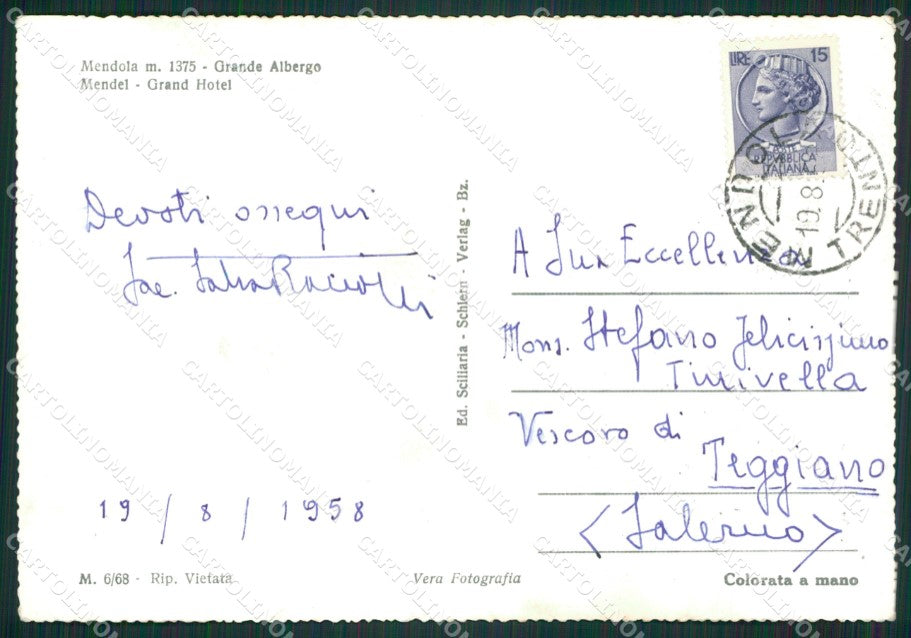 Mendola m. 1375 - Grande Albergo
Mendel - Grand Hotel
LIRE 15
POSTE
REPVBBLICA
ITALIANA
19.8
TRENTO
Devoti ossequi
Sac.
Ed. Sciliaria - Schlern - Verlag - Bz.
A Sua Eccellenza
Mons. Stefano Felicissimo
Tinivella
Vescovo di
Teggiano
(Salerno)
19 / 8 / 1958
M. 6/68 - Rip. Vietata
Vera Fotografia
Colorata a mano
CARTOLINOMANIA